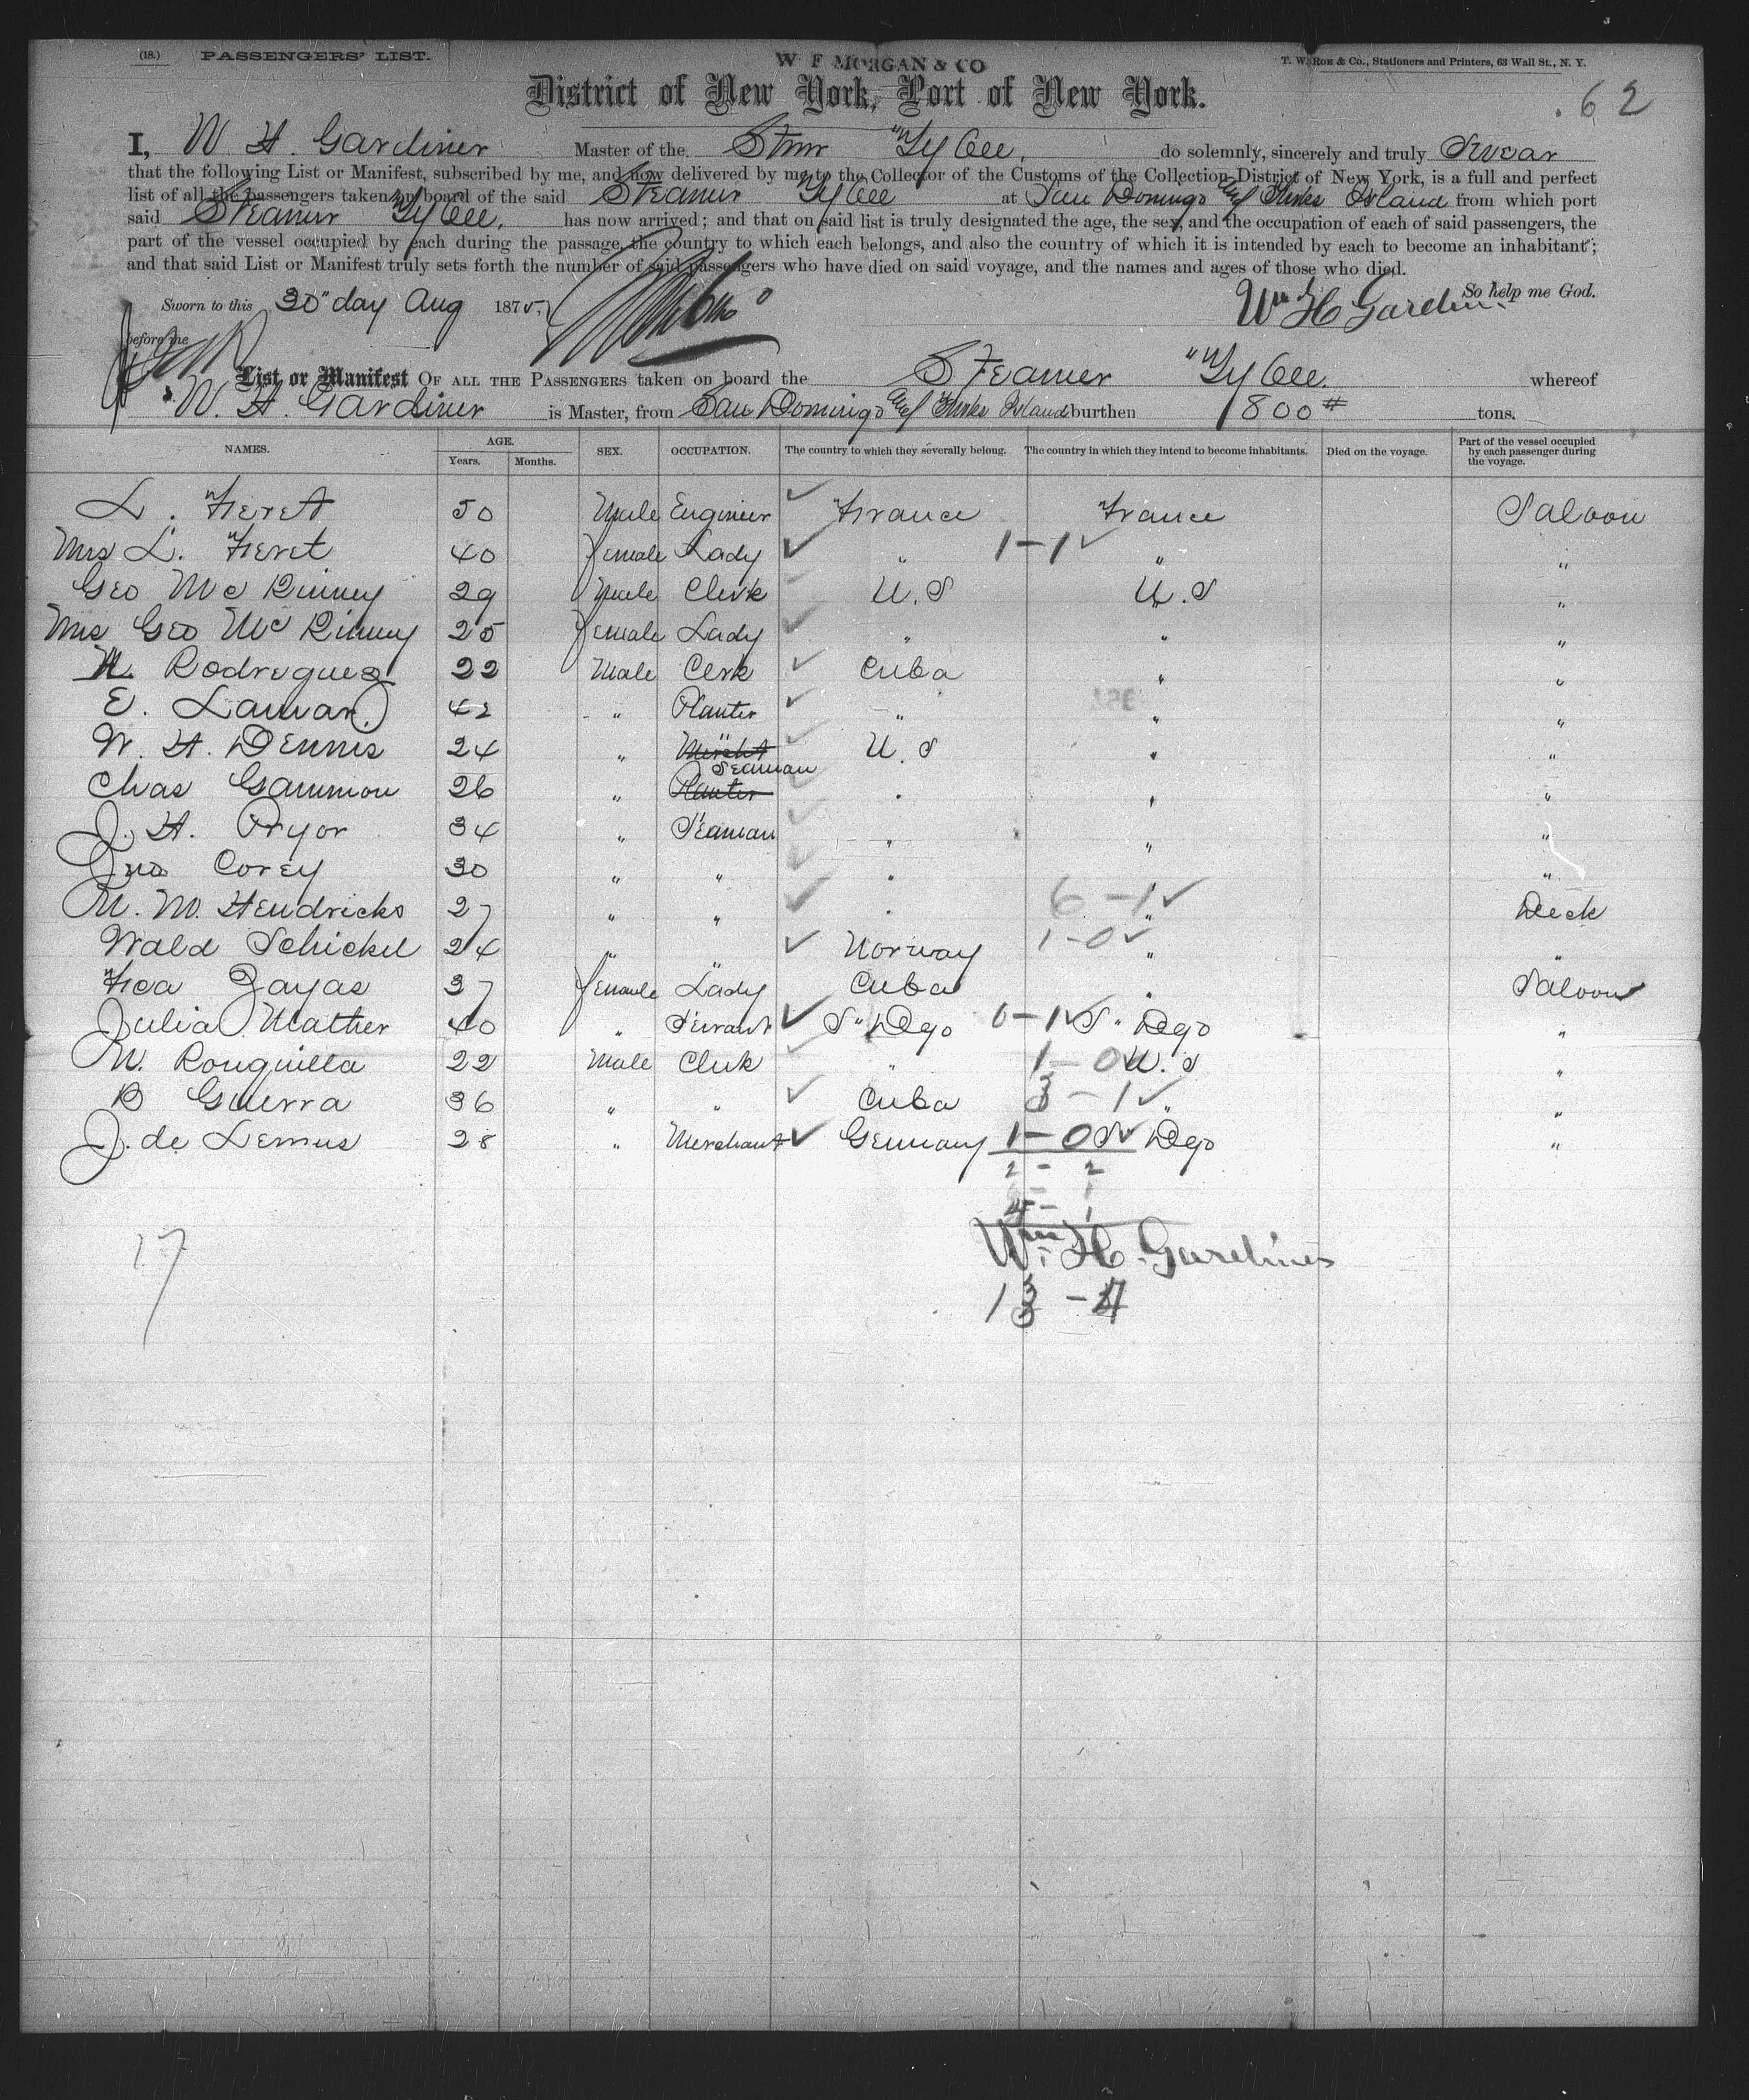 (18.) PASSENGERS' LIST. W. F. MORGAN & CO T. W. Roe & Co., Stationers and Printers, 63 Wall St., N. Y.
District of New York, Port of New York. 62
I, W. H. Gardiner Master of the Stmr "Tybee, do solemnly, sincerely and truly Swear
that the following List or Manifest, subscribed by me, and now delivered by me to the Collector of the Customs of the Collection District of New York, is a full and perfect
list of all the passengers taken on board of the said Steamer Tybee at San Domingo and Turks Island from which port
said Steamer Tybee, has now arrived; and that on said list is truly designated the age, the sex, and the occupation of each of said passengers, the
part of the vessel occupied by each during the passage, the country to which each belongs, and also the country of which it is intended by each to become an inhabitant;
and that said List or Manifest truly sets forth the number of said passengers who have died on said voyage, and the names and ages of those who died.
So help me God.
Sworn to this 30" day Aug 1875, Wm H Gardiner
before me
List or Manifest OF ALL THE PASSENGERS taken on board the Steamer "Tybee. whereof
W. H. Gardiner is Master, from San Domingo and Turks Island burthen 800 # tons.
NAMES. AGE. Years. Months. SEX. OCCUPATION. The country to which they severally belong. The country in which they intend to become inhabitants. Died on the voyage. Part of the vessel occupied by each passenger during the voyage.
L. Fieret 50 Male Engineer France France Saloon
Mrs L. Fieret 40 female Lady " 1-1 " "
Geo Mc Kinney 29 Male Clerk U.S U.S "
Mrs Geo Mc Kinney 25 female Lady " " "
Rodreguez 22 Male Clerk Cuba " "
E. Lamar 42 " Planter " " "
W. H. Dennis 24 " Mercht U.S " "
Seaman
Chas Gammon 26 " Planter " " "
J. H. Pryor 34 " Seaman " " "
Jno Corey 30 " " " " "
M. M. Hendricks 27 " " " 6-1 " Deck
Wald Schickel 24 " " Norway 1-0 " "
Zayas 37 female Lady Cuba " Saloon
Julia Mather 40 " Servant S" Dgo 0-1 S" Dgo "
M. Ronquilla 22 Male Clerk " 1-0 U.S "
B Guerra 36 " " Cuba 3-1 " "
J. de Lemus 28 " Merchant Germany 1-0 S Dgo "
2 - 2
4 - 1
Wm. H. Gardiner
17
13 - 4